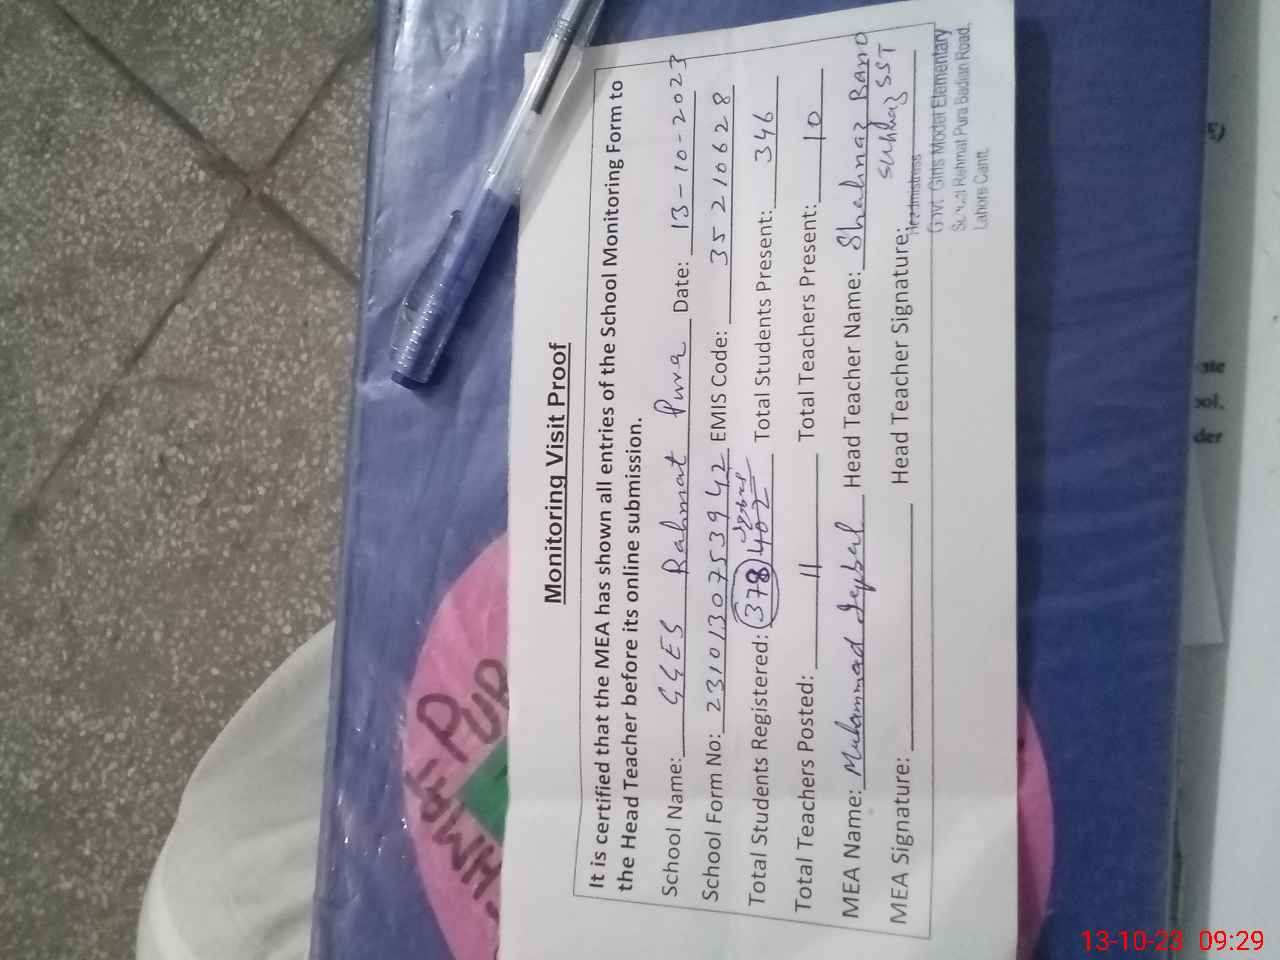 Monitoring Visit Proof
It is certified that the MEA has shown all entries of the School Monitoring Form to
the Head Teacher before its online submission.
School Name: GGES Rahmat Pura Date: 13-10-2023
School Form No: 2310130753942 EMIS Code: 35210628
Total Students Registered: 378 402 Total Students Present: 346
Total Teachers Posted: 11 Total Teachers Present: 10
MEA Name: Muhammad Iqbal Head Teacher Name: Shahnaz Bano
MEA Signature: Head Teacher Signature: SST
Headmistress
Govt. Girls Model Elementary
School Rehmat Pura Badian Road,
Lahore Cantt.
HMAT
PUR
ool,
der
13-10-23 09:29